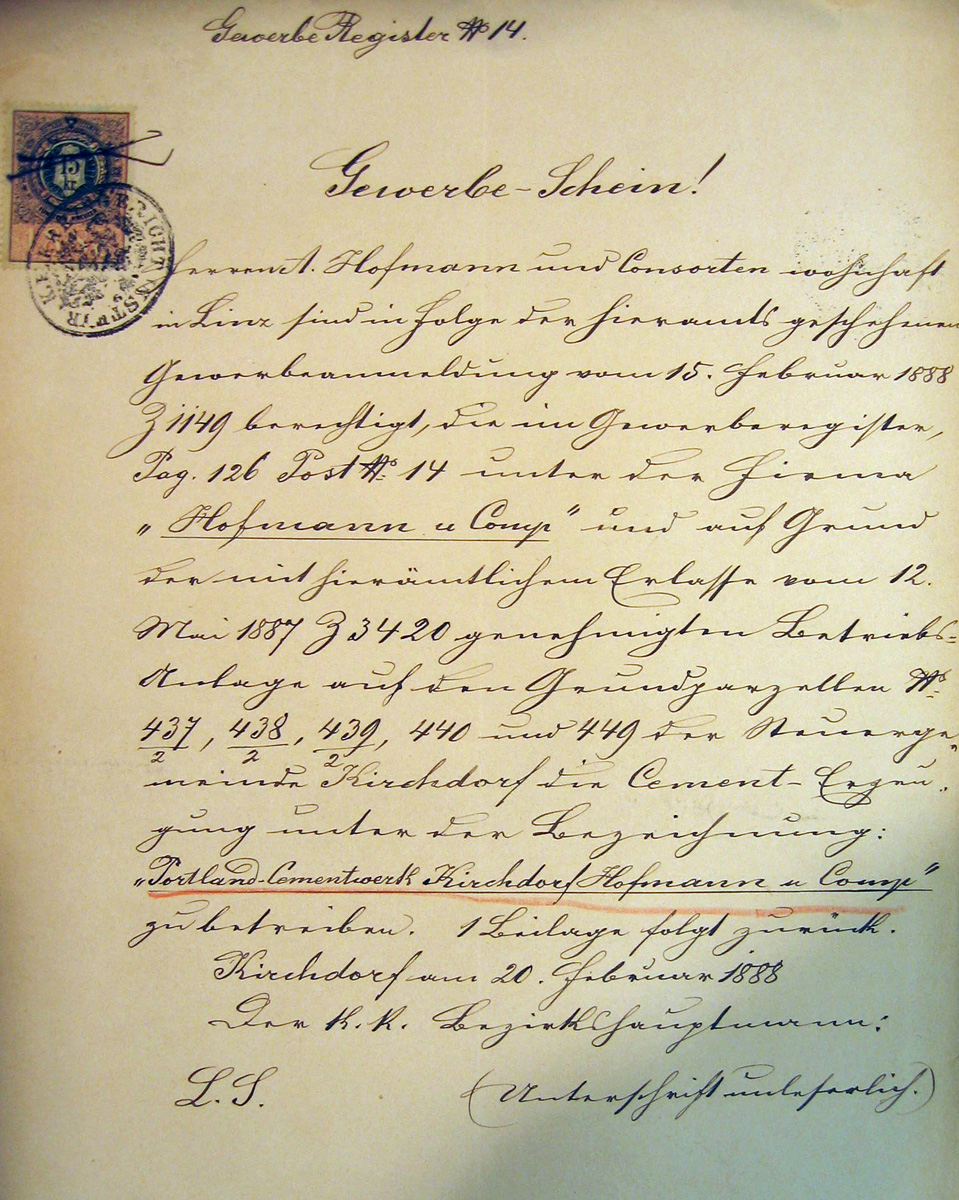 Gewerbe Register No 14.
15
kr
K.K. BEZIRKSGERICHT STEYR
Gewerbe-Schein!
Herren A. Hofmann und Consorten wohnhaft
in Linz sind in Folge der hieramts geschehenen
Gewerbeanmeldung vom 15. Februar 1888
Z 1149 berechtigt, die im Gewerberegister,
Pag. 126 Post No 14 unter der Firma
„Hofmann u Comp" und auf Grund
der mit hierämtlichem Erlasse vom 12.
Mai 1887 Z 3420 genehmigten Betriebs-
Anlage auf den Grundparzellen No
437/2, 438/2, 439/2, 440 und 449 der Steuerge-
meinde Kirchdorf die Cement-Erzeu-
gung unter der Bezeichnung:
„Portland-Cementwerk Kirchdorf Hofmann u Comp"
zu betreiben. 1 Beilage folgt zurück.
Kirchdorf am 20. Februar 1888
Der k. k. Bezirkshauptmann:
L. S. (Unterschrift unleserlich.)